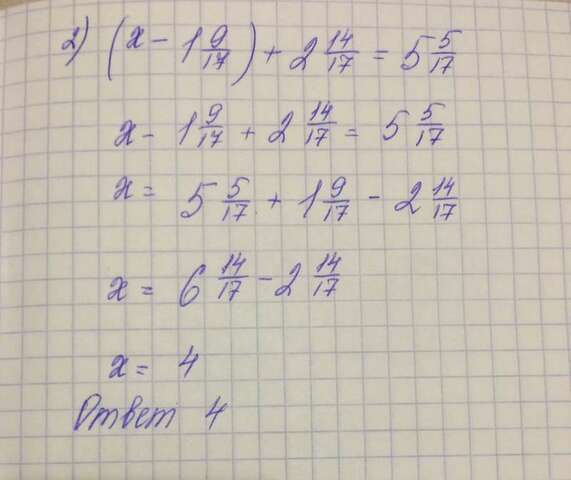 2) (x - 1 9/17) + 2 14/17 = 5 5/17
x - 1 9/17 + 2 14/17 = 5 5/17
x = 5 5/17 + 1 9/17 - 2 14/17
x = 6 14/17 - 2 14/17
x = 4
Ответ 4